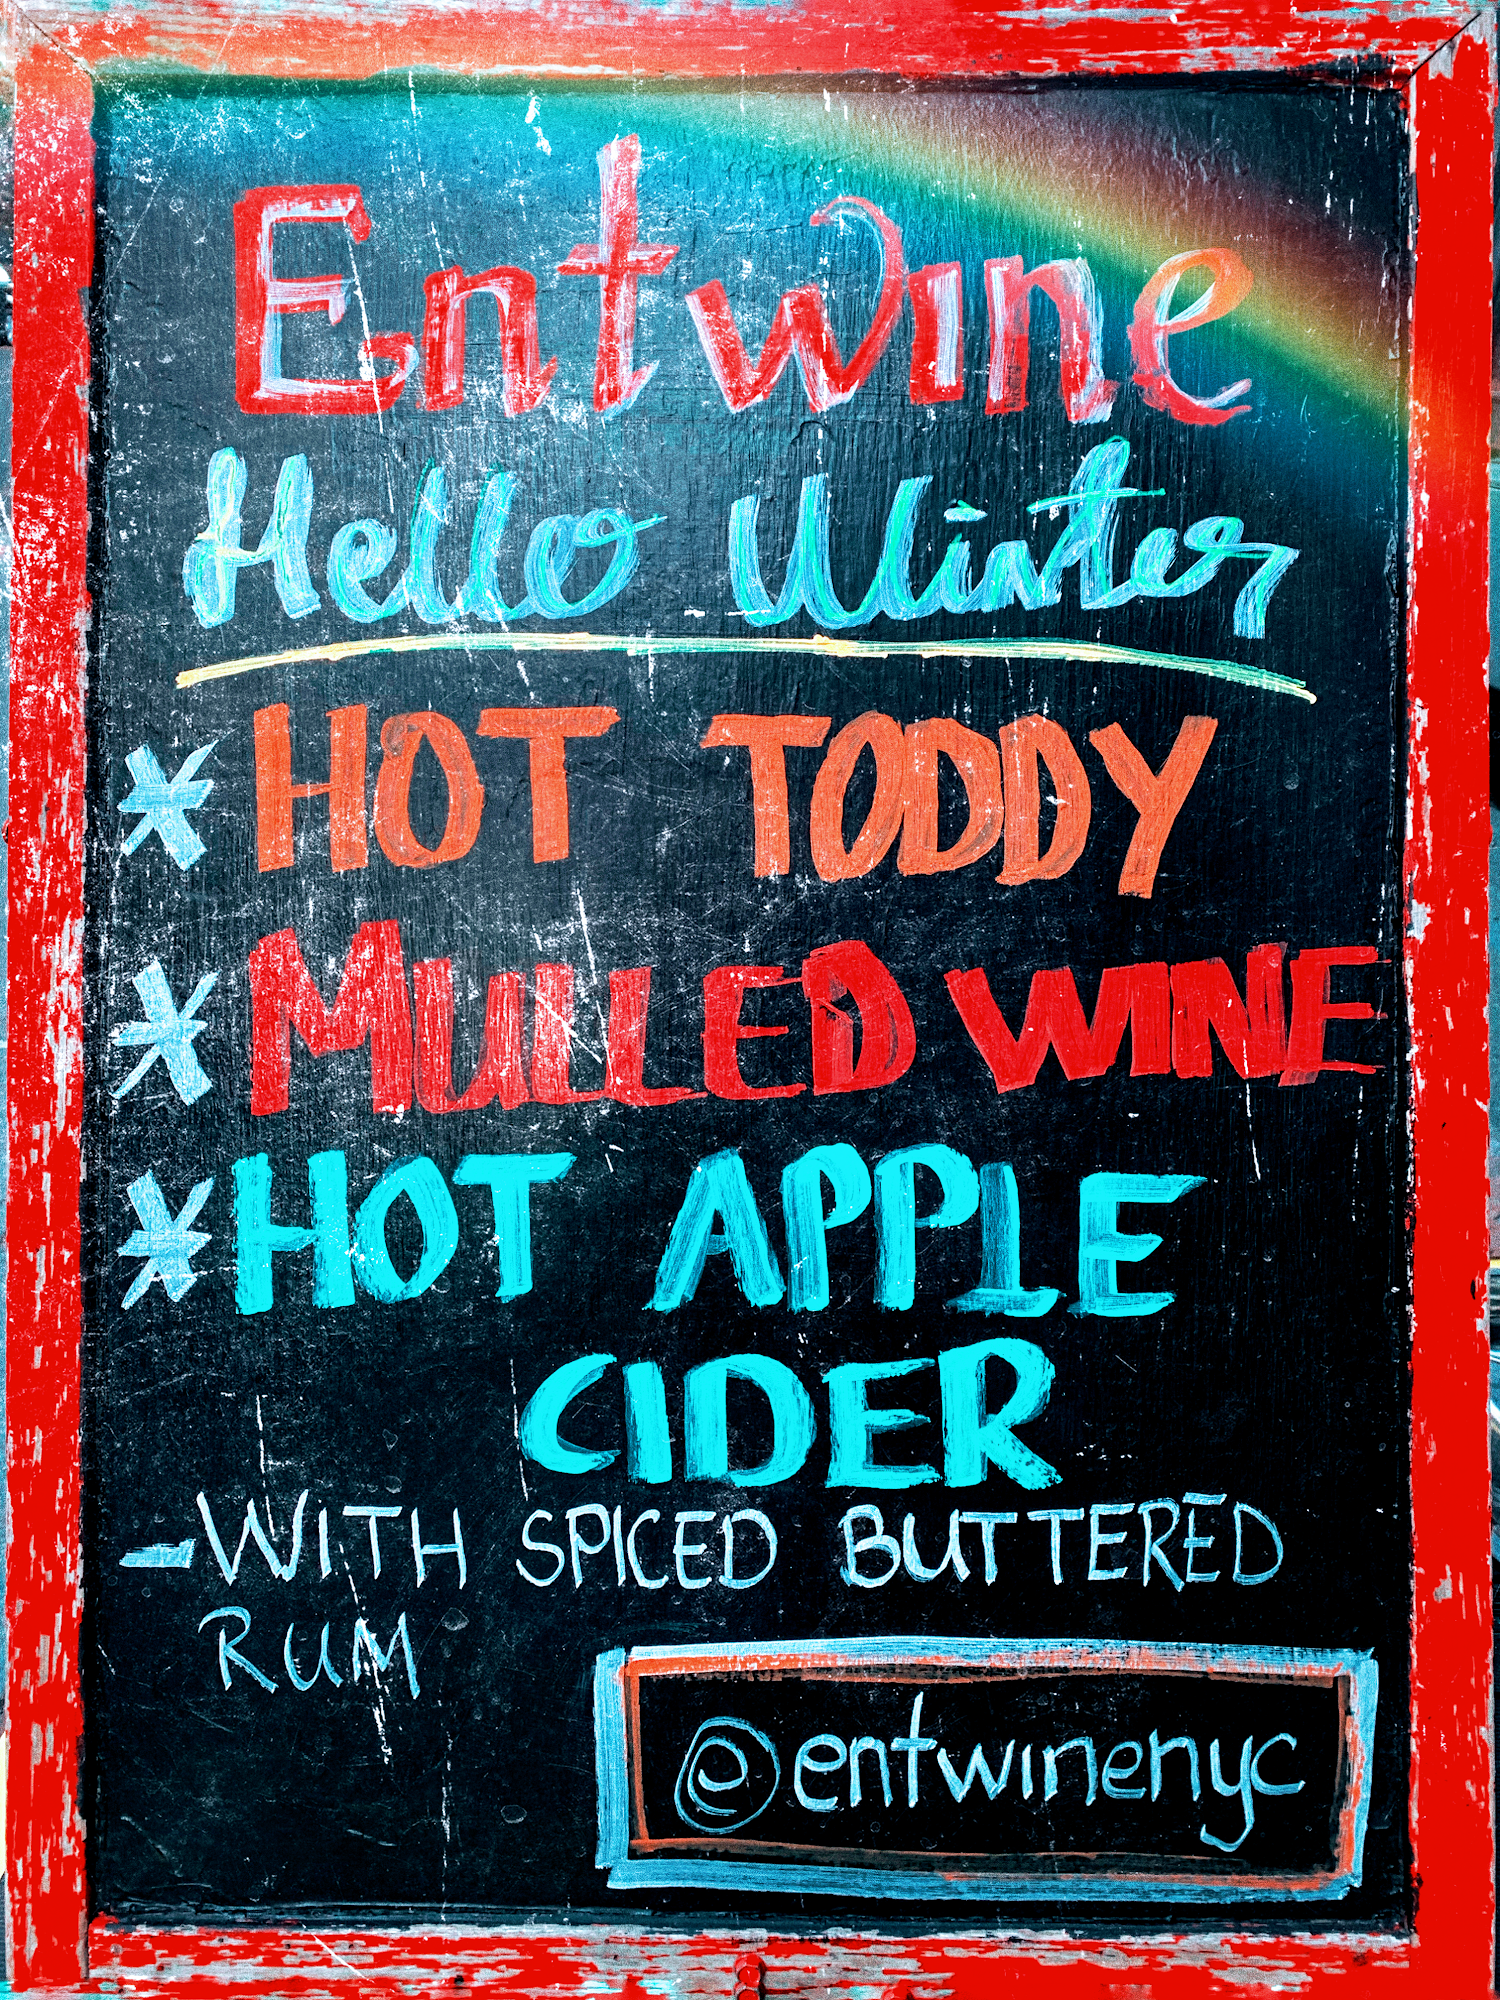 Entwine
Hello Winter
* HOT TODDY
* MULLED WINE
* HOT APPLE
CIDER
- WITH SPICED BUTTERED
RUM
@entwinenyc